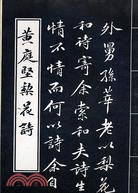 外舅孫莘老以梨花
和詩寄余索和夫詩生
情不情而何以詩余自
黃庭堅棃花詩